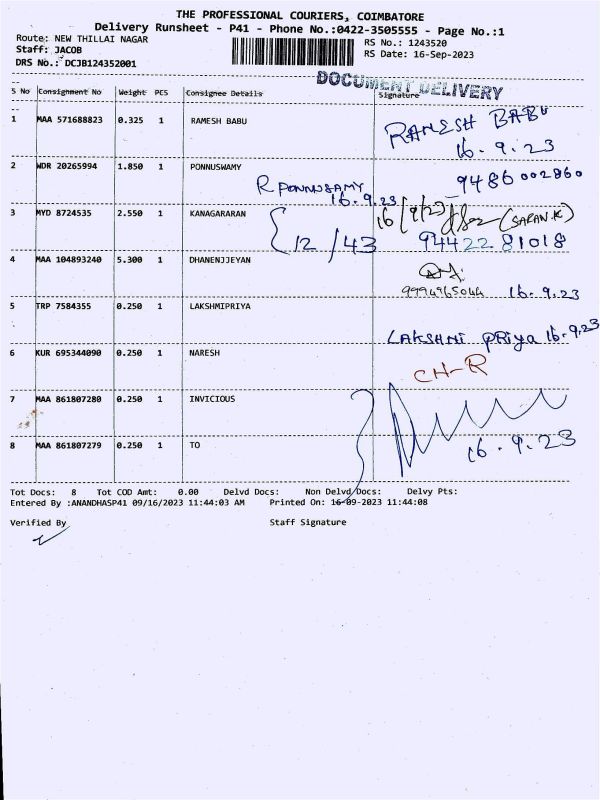 THE PROFESSIONAL COURIERS, COIMBATORE
Delivery Runsheet - P41 - Phone No.:0422-3505555 - Page No.:1
Route: NEW THILLAI NAGAR
RS No.: 1243520
Staff: JACOB
RS Date: 16-Sep-2023
DRS No.: DCJB124352001
DOCUMENT DELIVERY
S No Consignment No Weight PCS Consignee Details Signature
1 MAA 571688823 0.325 1 RAMESH BABU RAMESH BABU
16.9.23
2 WDR 20265994 1.850 1 PONNUSWAMY 9486002860
R PONNUSAMY
16.9.23
3 MYD 8724535 2.550 1 KANAGARARAN 16/9/23 (SARAN.K)
12/43 94422 81018
4 MAA 104893240 5.300 1 DHANENJJEYAN
9994965044 16.9.23
5 TRP 7584355 0.250 1 LAKSHMIPRIYA
LAKSHMI PRIYA 16.9.23
6 KUR 695344090 0.250 1 NARESH
CH-R
7 MAA 861807280 0.250 1 INVICIOUS
8 MAA 861807279 0.250 1 TO 16.9.23
Tot Docs: 8 Tot COD Amt: 0.00 Delvd Docs: Non Delvd Docs: Delvy Pts:
Entered By :ANANDHASP41 09/16/2023 11:44:03 AM Printed On: 16-09-2023 11:44:08
Verified By Staff Signature